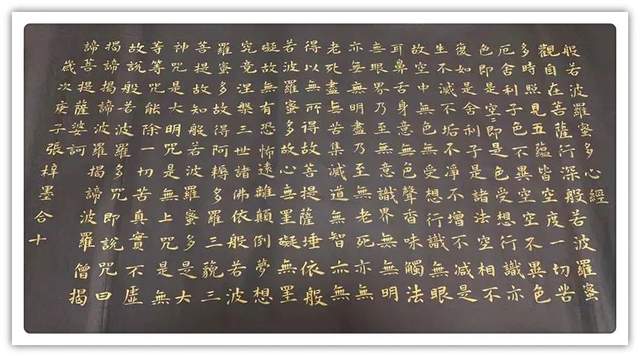 般若波羅蜜多心經
觀自在菩薩行深般若波羅蜜
多時照見五蘊皆空度一切苦
厄舍利子色不異空空不異色
色即是空空即是色受想行識亦
復如是舍利子是諸法空相不
生不滅不垢不淨不增不減是
故空中無色無受想行識無眼
耳鼻舌身意無色聲香味觸法
無眼界乃至無意識界無無明
亦無無明盡乃至無老死亦無
老死盡無苦集滅道無智亦無
得以無所得故菩提薩埵依般
若波羅蜜多故心無罣礙無罣
礙故無有恐怖遠離顛倒夢想
究竟涅槃三世諸佛依般若波
羅蜜多故得阿耨多羅三藐三
菩提故知般若波羅蜜多是大
神咒是大明咒是無上咒是無
等等咒能除一切苦真實不虛
故說般若波羅蜜多咒即說咒曰
揭諦揭諦波羅揭諦波羅僧揭
諦菩提薩婆訶
歲次庚子張梓墨合十